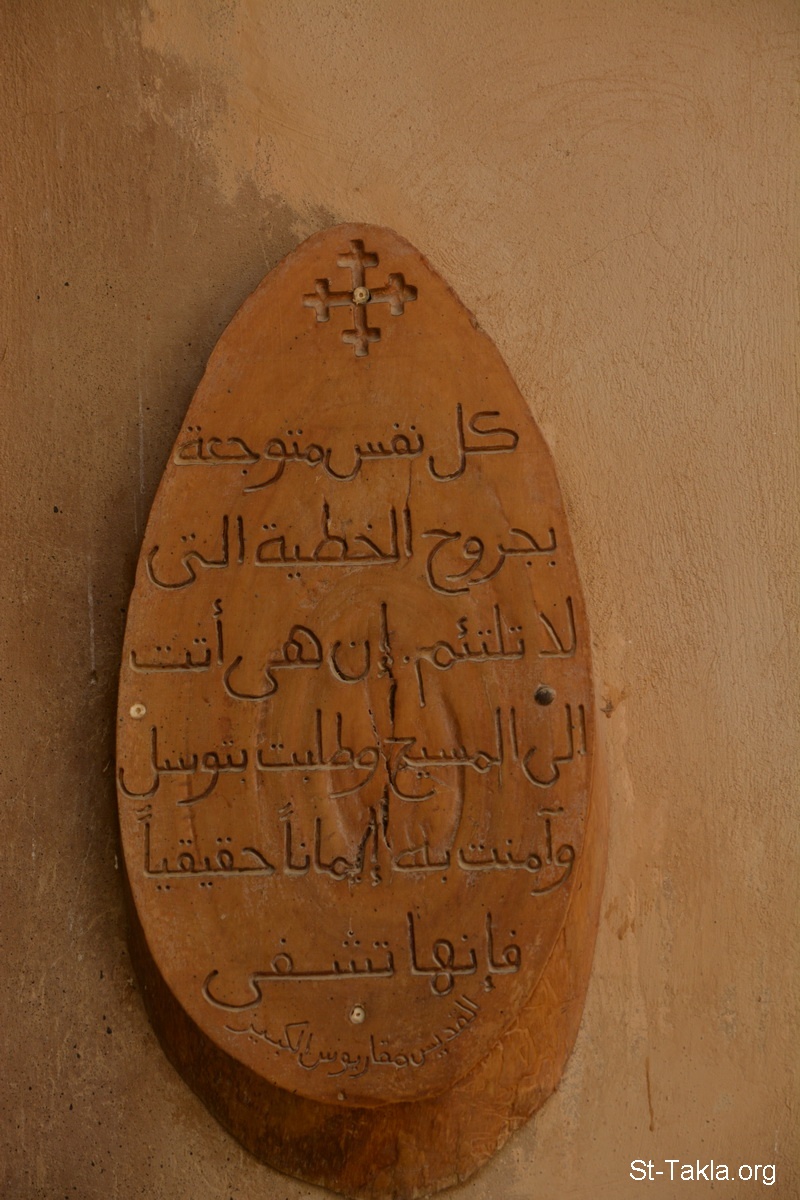 كل نفس متوجعة
بجروح الخطية التى
لا تلتئم. إن هى أتت
الى المسيح وطلبت بتوسل
وآمنت به إيماناً حقيقياً
فإنها تشفى
القديس مقاريوس الكبير
St-Takla.org